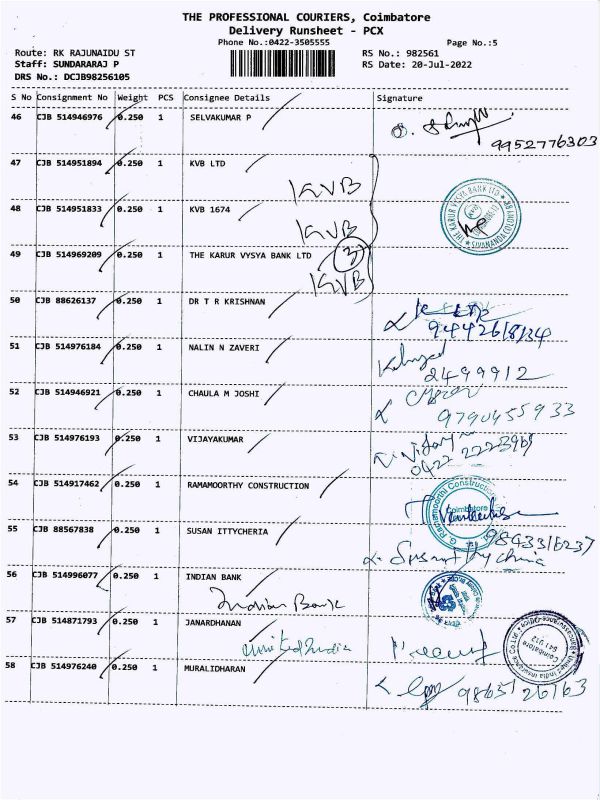 THE PROFESSIONAL COURIERS, Coimbatore
Delivery Runsheet - PCX
Phone No.:0422-3505555
Page No.:5
Route: RK RAJUNAIDU ST
RS No.: 982561
Staff: SUNDARARAJ P
RS Date: 20-Jul-2022
DRS No.: DCJB98256105
S No Consignment No Weight PCS Consignee Details Signature
46 CJB 514946976 0.250 1 SELVAKUMAR P
9952776303
47 CJB 514951894 0.250 1 KVB LTD
KVB
48 CJB 514951833 0.250 1 KVB 1674
KVB
THE KARUR VYSYA BANK LTD
SIVANANDA COLONY BR
49 CJB 514969209 0.250 1 THE KARUR VYSYA BANK LTD
3
KVB
50 CJB 88626137 0.250 1 DR T R KRISHNAN
9442618134
51 CJB 514976184 0.250 1 NALIN N ZAVERI
2499912
52 CJB 514946921 0.250 1 CHAULA M JOSHI
9790455933
53 CJB 514976193 0.250 1 VIJAYAKUMAR
0422 2223969
54 CJB 514917462 0.250 1 RAMAMOORTHY CONSTRUCTION
G. Ramamoorthi Construction
Coimbatore
55 CJB 88567838 0.250 1 SUSAN ITTYCHERIA
9843316237
56 CJB 514996077 0.250 1 INDIAN BANK
Indian Bank
57 CJB 514871793 0.250 1 JANARDHANAN
United India
United India Insurance Co.Ltd.
Coimbatore
641 012
58 CJB 514976240 0.250 1 MURALIDHARAN
9865126163